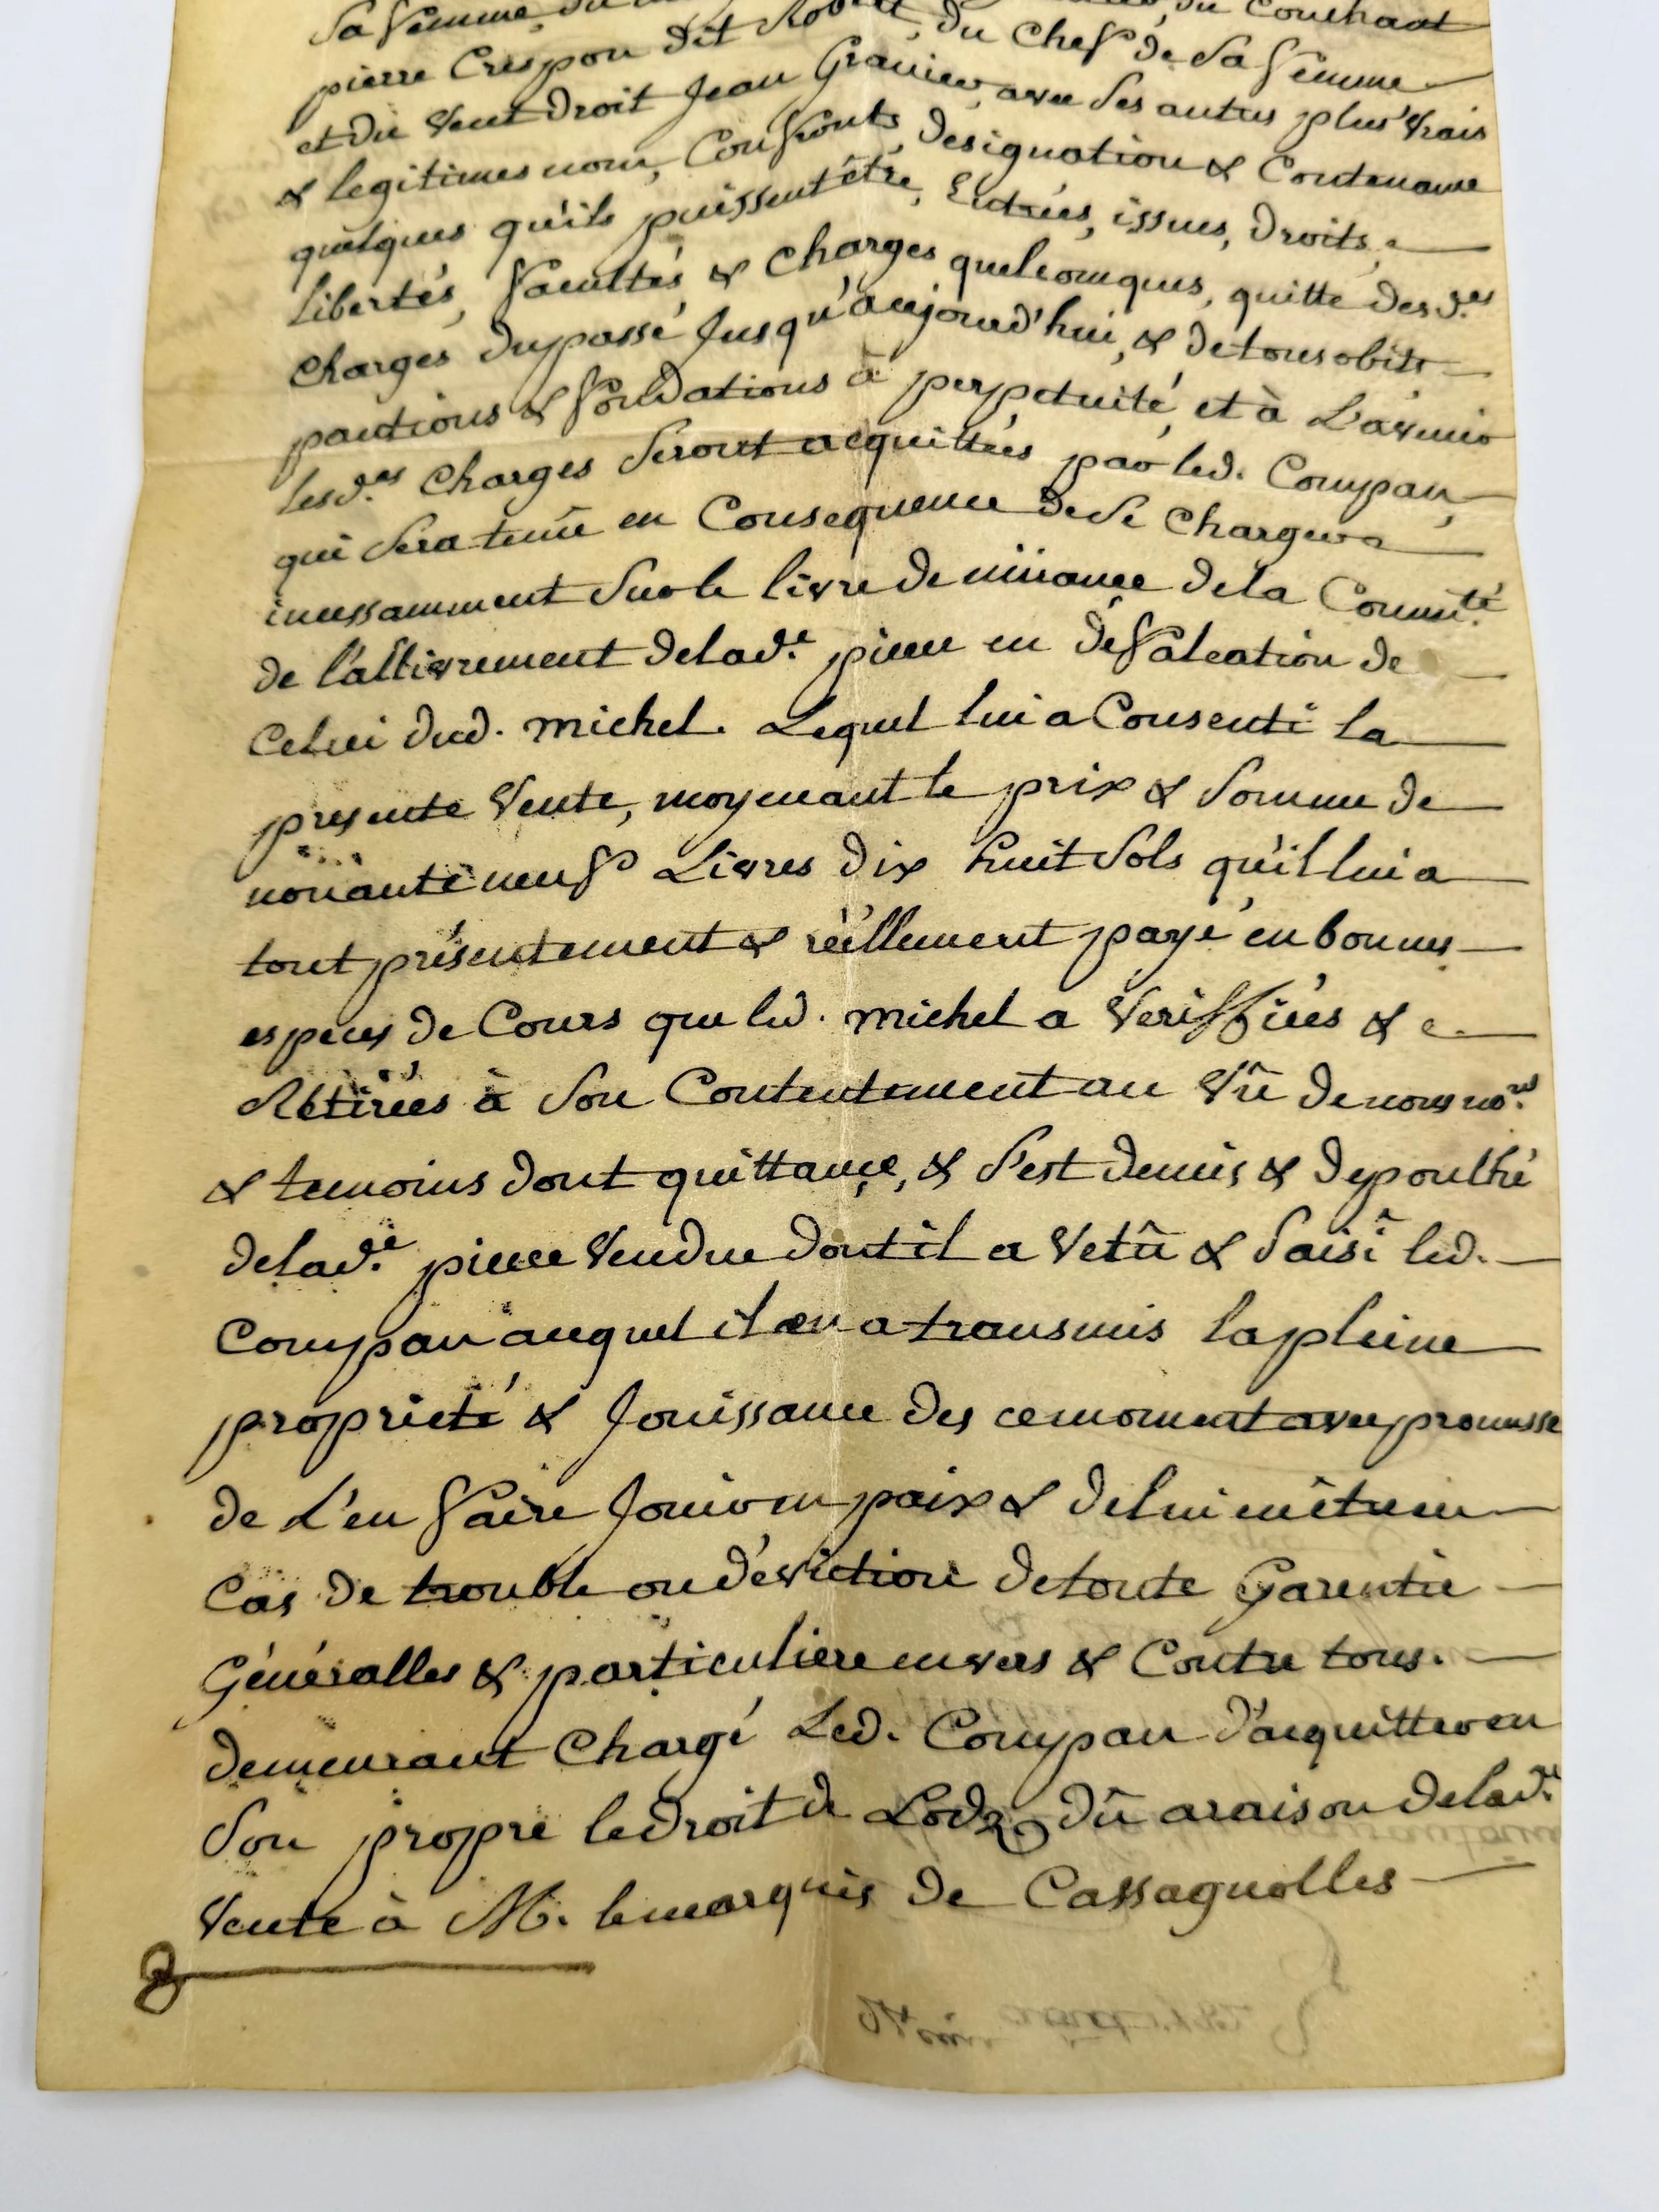 Sa femme, du Couchant
pierre Crespon dit Robert, du Chef de Sa femme
et du vent droit Jean Granier, avec Ses autres plus vrais
& legitimes nom, Confronts, designation & Contenance
quelques qu'ils puissent être, Entrées, issues, droits,
libertés, facultés & charges quelcomques, quitte des d.es
charges du passé Jusqu'aujourd'hui, & de tous obits
pantions & fondations à perpetuité, et à L'avenir
lesd.es charges Seront acquittées par led. Coupan,
qui Sera tenû en Consequence de Se charger
incessamment Sur le livre de müance de la Commu.té
de l'allivrement de lad.e piece en défalcation de
Celui dud. michel. Lequel lui a Consenti la
presente vente, moyenant le prix & Somme de
nonante neuf Livres dix huit Sols qu'il lui a
tout présentement & réellement payé en bonnes
especes de Cours que led. michel a veriffiées &
Rétirées à Son Contentement au vû de nous no.re
& temoins dont quittance, & S'est demis & depoulhé
de lad.e piece vendue dont il a vetû & Saisi led.
Coupan auquel il en a transmis la pleine
proprieté & Jouissance des ce moment avec promesse
de L'en faire Jouir en paix & de lui en être en
Cas de trouble ou d'éviction de toute Garentie
Généralles & particuliere envers & Contre tous.
demeurant Chargé Led. Coupan d'acquitter en
Son propre le droit de Lods dû a raison de lad.e
vente à M. le marquis de Cassagnolles